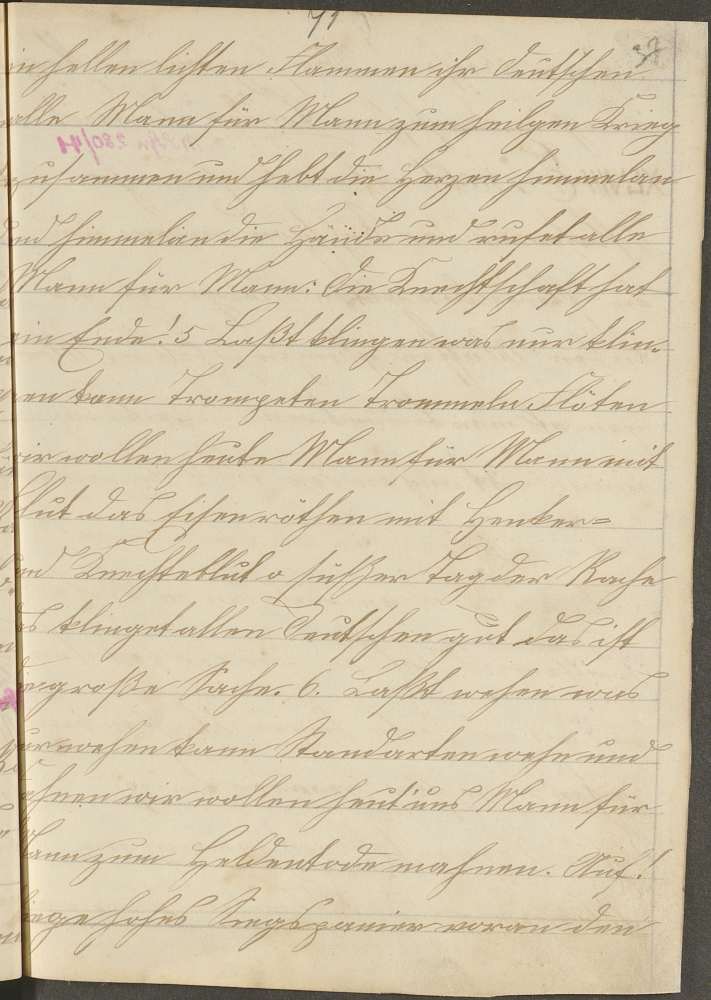 71
37
in hellen lichten Flammen ihr Deutschen
alle Mann für Mann zum heilgen Krieg
zusammen und hebt die Herzen himmelan
und himmelan die Hände und rufet alle
Mann für Mann: Die Knechtschaft hat
ein Ende! 5 Laßt klingen was nur klin-
gen kann Trompeten Trommeln Flöten
wir wollen heute Mann für Mann mit
Blut das Eisen röthen mit Henker-
und Knechteblut o süßer Tag der Rache
es klinget allen Deutschen gut das ist
die große Sache. 6. Laßt wehen was
nur wehen kann Standarten wehn und
Fahnen wir wollen heut uns Mann für
Mann zum Heldentode mahnen. Auf!
fliege hohes Siegspanier voran den